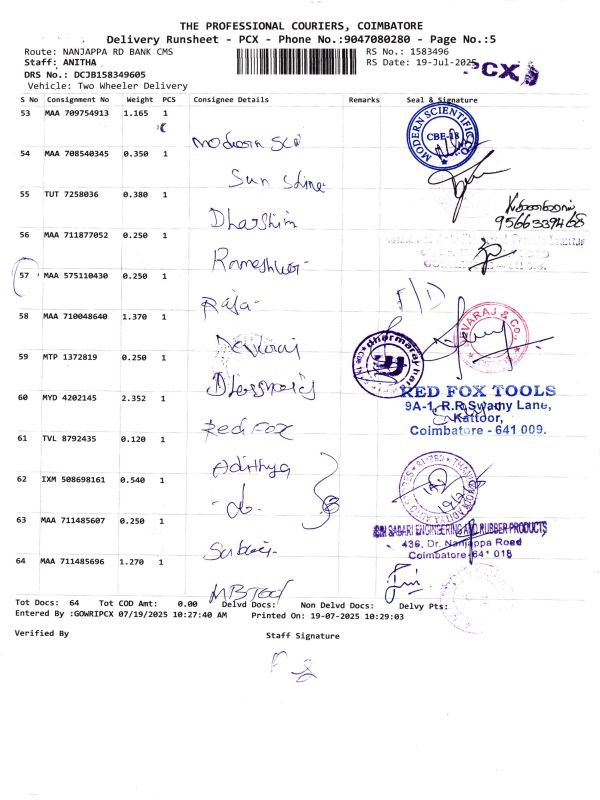 THE PROFESSIONAL COURIERS, COIMBATORE
Delivery Runsheet - PCX - Phone No.:9047080280 - Page No.:5
Route: NANJAPPA RD BANK CMS
RS No.: 1583496
Staff: ANITHA
RS Date: 19-Jul-2025
PCX
DRS No.: DCJB158349605
Vehicle: Two Wheeler Delivery
S No Consignment No Weight PCS Consignee Details Remarks Seal & Signature
53 MAA 709754913 1.165 1
MODERN SCIENTIFIC CBE-18
54 MAA 708540345 0.350 1
Sun Shine
55 TUT 7258036 0.380 1
Dharshini
9566339468
56 MAA 711877052 0.250 1
Rameshwar
57 MAA 575110430 0.250 1
Raja
58 MAA 710048640 1.370 1
Devaraj
EVARAJ & Co.,
59 MTP 1372819 0.250 1
60 MYD 4202145 2.352 1
RED FOX TOOLS
9A-1, R.R.Swamy Lane,
Kattoor,
Coimbatore - 641 009.
Red Fox
61 TVL 8792435 0.120 1
Adithya
62 IXM 508698161 0.540 1
63 MAA 711485607 0.250 1
SRI SABARI ENGINEERING AND RUBBER PRODUCTS
436, Dr. Nanjappa Road
Coimbatore - 641 018
64 MAA 711485696 1.270 1
Tot Docs: 64 Tot COD Amt: 0.00 Delvd Docs: Non Delvd Docs: Delvy Pts:
Entered By :GOWRIPCX 07/19/2025 10:27:40 AM Printed On: 19-07-2025 10:29:03
Verified By
Staff Signature